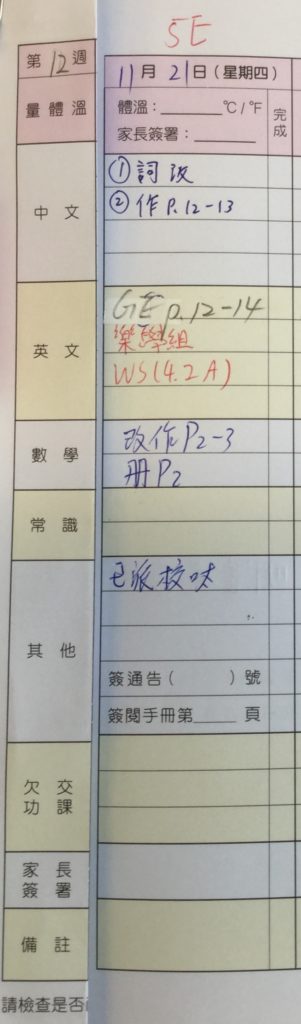 5E
第12週
11月21日(星期四)
量體溫
體溫:______℃/℉
家長簽署:______
完成
中文
①詞改
②作P.12-13
英文
GE p.12-14
樂學組
WS(4.2A)
數學
改作P2-3
冊P2
常識
其他
已派校味
簽通告( )號
簽閱手冊第____頁
欠交功課
家長簽署
備註
請檢查是否